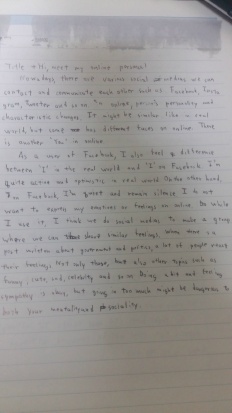 Title : Hi, meet my online persona!
Nowadays there are various social medias we can
contact and communicate each other such as Facebook, Insta
gram, Tweeter and so on. In online, person's personality and
characteristic changes. It might be similar like in real
world, but some has different faces on online. There
is another "me" in online
As a user of Facebook, I also feel a difference
between 'I' in the real world and 'I' in Facebook. I'm
quite active and energetic in real world. On the other hand,
in Facebook, I'm quiet and remain silence. I do not
want to express my emotions or feelings on online. So while
I use it, I think we do social medias to make a group
where we can share about similar feelings. When there is a
post related about government and politics, a lot of people share
their feelings. Not only those, but also other topics such as
funny, cute, sad, celebrity and so on. Being a bit and feeling
sympathy is okay, but going in too much might be dangerous to
both your mentality and sociality.